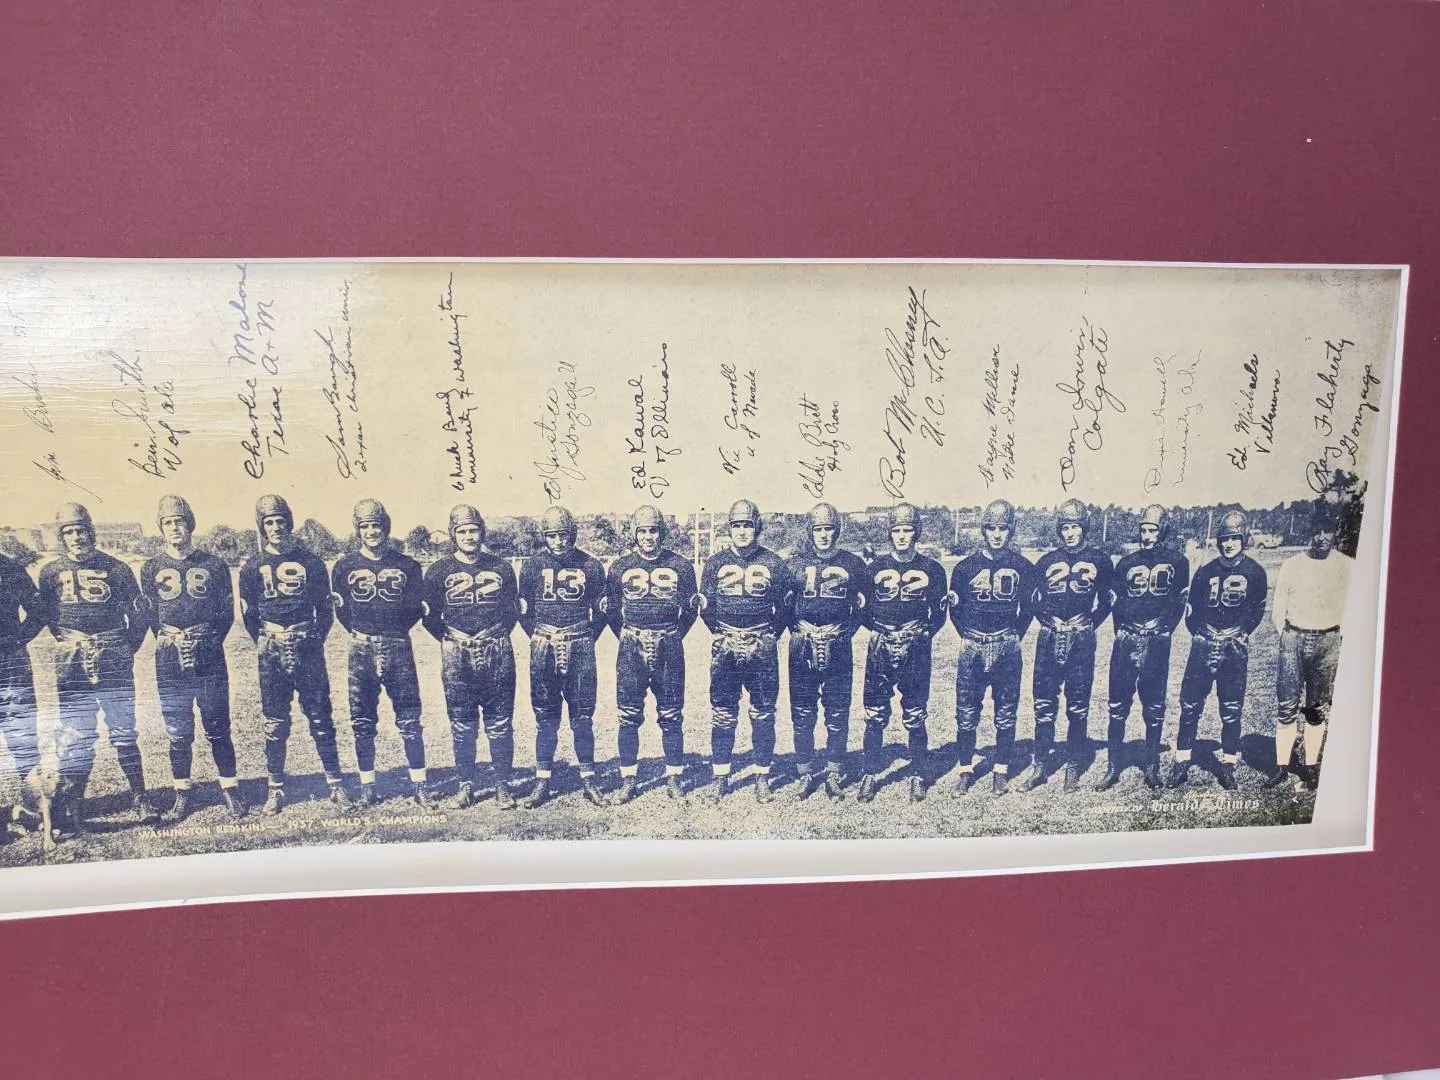 Jim Barber
Ben Smith
U of Ala
Charlie Malone
Texas A + M
Sam Baugh
Texas christian univ.
Chuck Bond
university of washington
Ed Justice
Gonzaga U
Ed Kawal
U of Illinois
Vic Carroll
U of Nevada
Eddie Britt
Holy Cross
Bob McChesney
U. C. L. A.
Wayne Millner
Notre Dame
Don Irwin
Colgate
Dixie Howell
University Ala
Ed Michaels
Villanova
Ray Flaherty
Gonzaga
15
38
19
33
22
13
39
26
12
32
40
23
30
18
WASHINGTON REDSKINS— 1937 WORLD'S CHAMPIONS
Herald Times